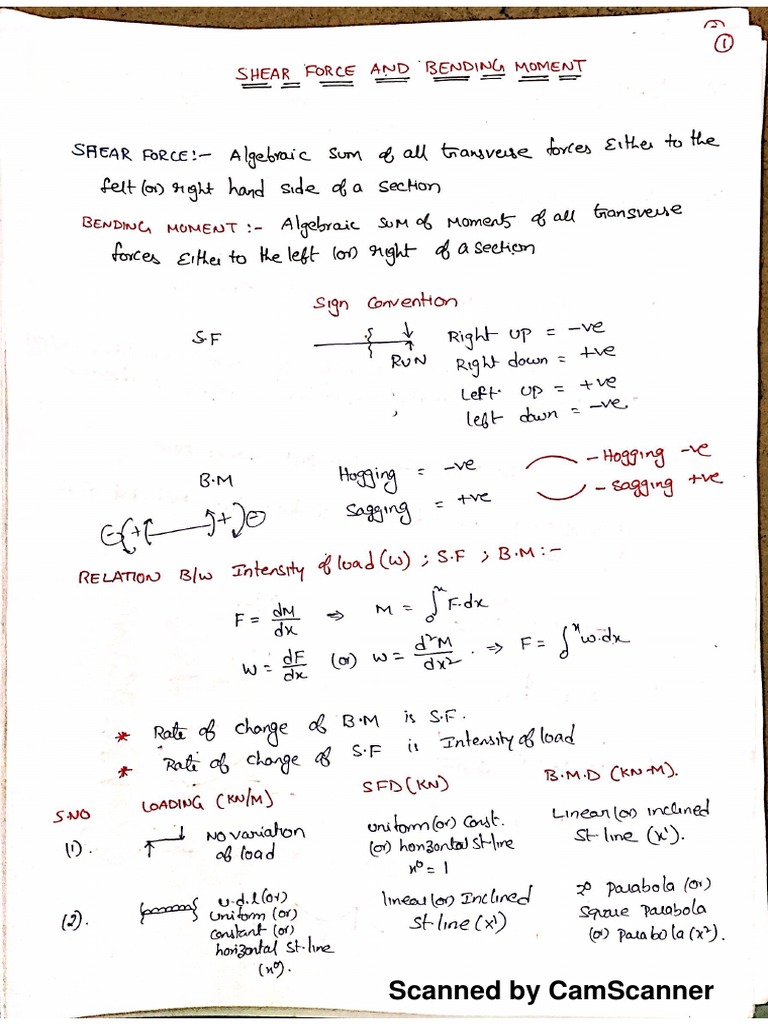 (2)
1
SHEAR FORCE AND BENDING MOMENT
SHEAR FORCE:- Algebraic sum of all transverse forces Either to the
felt (or) right hand side of a section
BENDING MOMENT:- Algebraic sum of Moments of all transverse
forces Either to the left (or) right of a section
Sign Convention
S.F
RUN
Right up = -ve
Right down = +ve
Left up = +ve
left down = -ve
B.M
Hogging = -ve
Sagging = +ve
- Hogging -ve
- Sagging +ve
RELATION B/w Intensity of load (w) ; S.F ; B.M:-
F = dM/dx ⇒ M = ∫₀ˣ F.dx
W = dF/dx (or) W = d²M/dx² . ⇒ F = ∫₀ˣ w.dx
* Rate of change of B.M is S.F.
* Rate of change of S.F is Intensity of load
S.NO LOADING (KN/M) SFD (KN) B.M.D (KN-M).
(1). No variation of load
uniform (or) Const. (or) horizontal st-line x⁰ = 1
Linear (or) inclined St-line (x¹).
(2). u.d.l (or) uniform (or) constant (or) horizontal st-line (x⁰).
linear (or) Inclined St-line (x¹)
2⁰ Parabola (or) Square Parabola (or) Parabola (x²).
Scanned by CamScanner